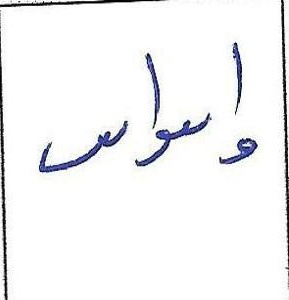 واسواس